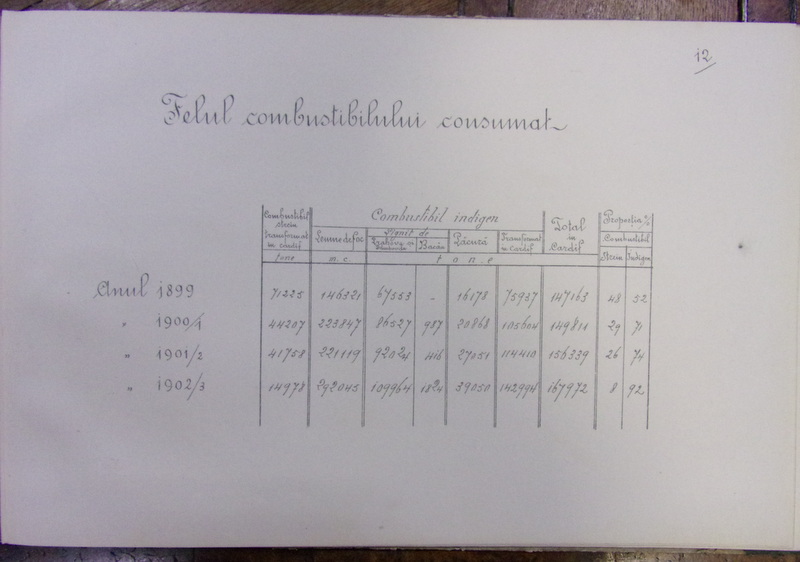 12
Felul combustibilului consumat
Combustibil strein transformat in cardif
Combustibil indigen
Total in Cardif
Proportia %
Lemne de foc
Lignit de
Bacău
Păcură
Transformat in Cardif
Combustibil
Strein Indigen
tone m.c. tone
Anul 1899 71225 146321 67553 - 16178 75937 147163 48 52
„ 1900/1 44207 223847 86527 987 20868 105604 149811 29 71
„ 1901/2 41758 221119 92024 416 27051 114410 156339 26 74
„ 1902/3 14978 292045 109964 1824 39050 142994 167972 8 92